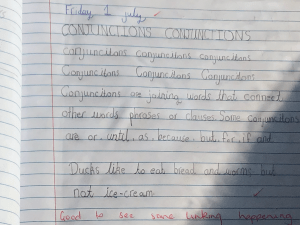 Friday 1 july
CONJUNCTIONS CONJUNCTIONS
conjunctions conjunctions conjunctions
Conjunctions Conjunctions Conjunctions
Conjunctions are joining words that connect
other words phrases or clauses. Some conjunctions
are or, until, as, because, but, for, if and
Ducks like to eat bread and worms but
not ice-cream.
Good to see some linking happening